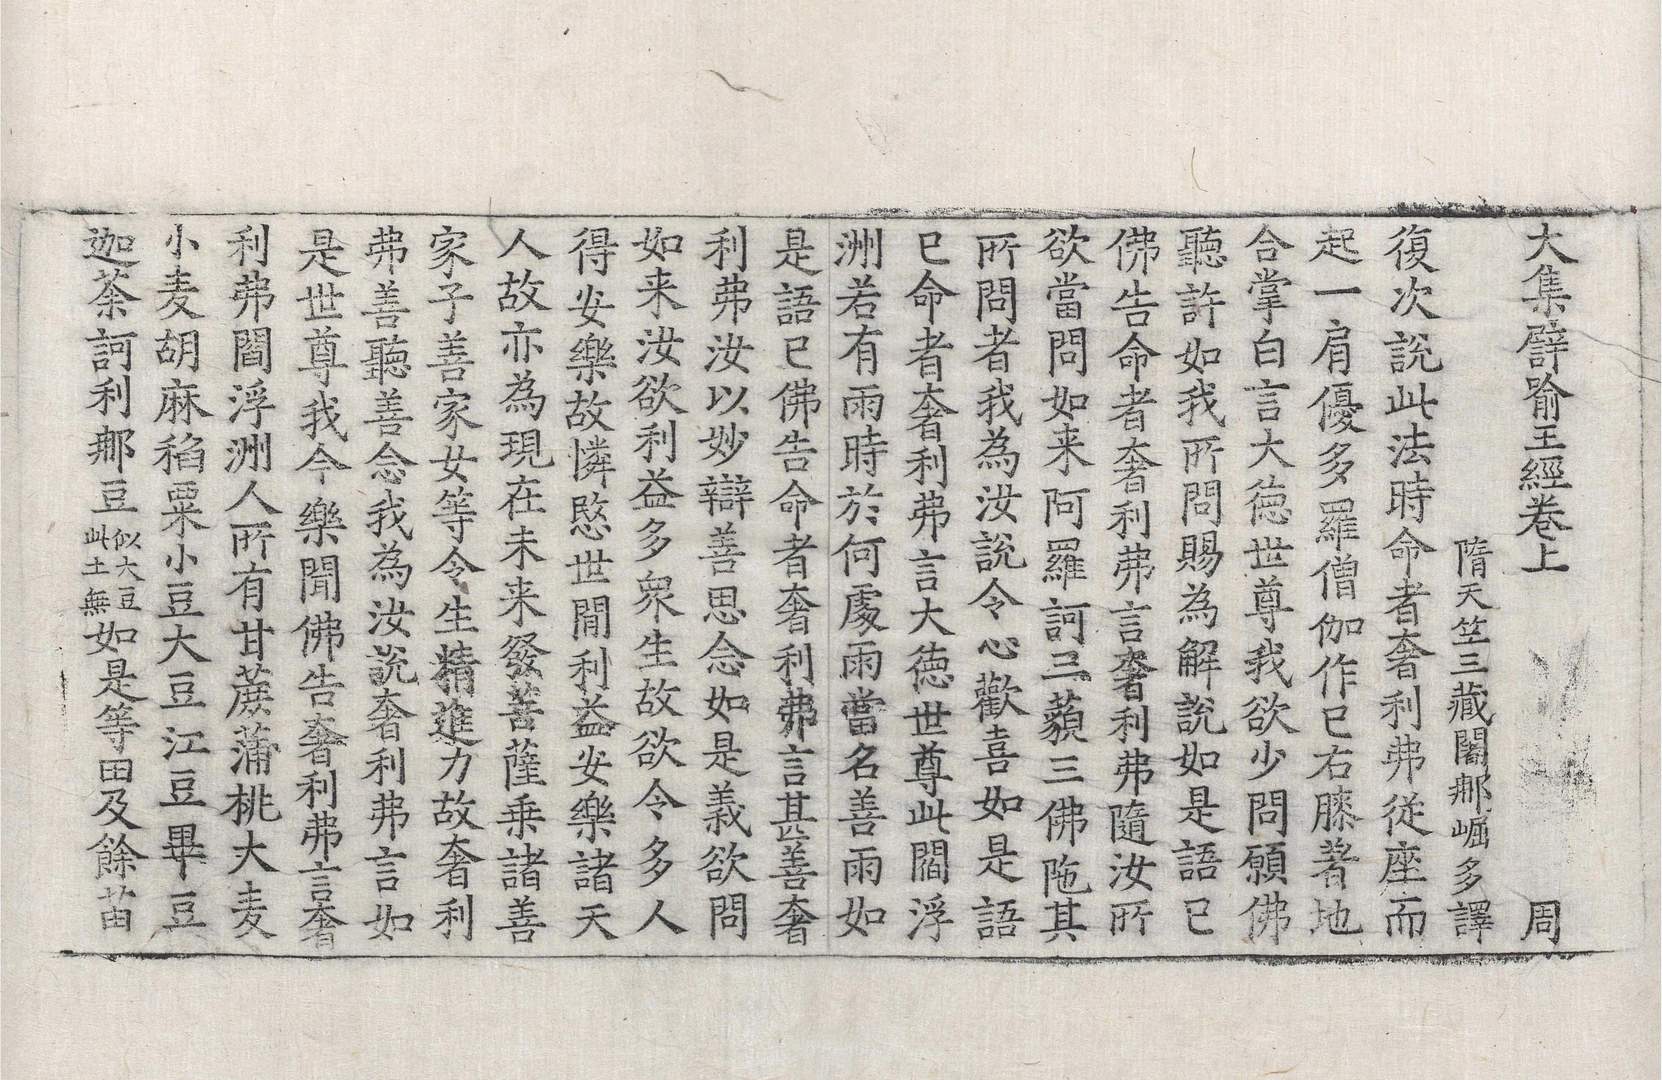 大集譬喻王經卷上 周
隋天竺三藏闍那崛多譯
復次說此法時命者奢利弗從座而
起一肩優多羅僧伽作已右膝著地
合掌白言大德世尊我欲少問願佛
聽許如我所問賜為解說如是語已
佛告命者奢利弗言奢利弗隨汝所
欲當問如来阿羅訶三藐三佛陁其
所問者我為汝說令心歡喜如是語
已命者奢利弗言大德世尊此閻浮
洲若有雨時於何處雨當名善雨如
是語已佛告命者奢利弗言甚善奢
利弗汝以妙辯善思念如是義欲問
如来汝欲利益多衆生故欲令多人
得安樂故憐愍世間利益安樂諸天
人故亦為現在未来發菩薩乗諸善
家子善家女等令生精進力故奢利
弗善聽善念我為汝說奢利弗言如
是世尊我今樂聞佛告奢利弗言奢
利弗閻浮洲人所有甘蔗蒲桃大麦
小麦胡麻稻粟小豆大豆江豆畢豆
迦荼訶利那豆似大豆此土無如是等田及餘苗